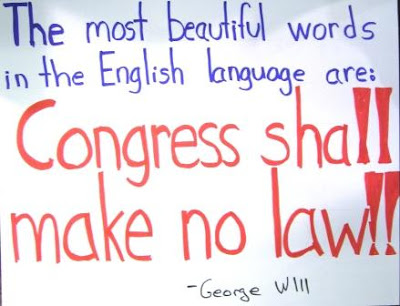 The most beautiful words
in the English language are:
Congress shall
make no law!!
-George Will